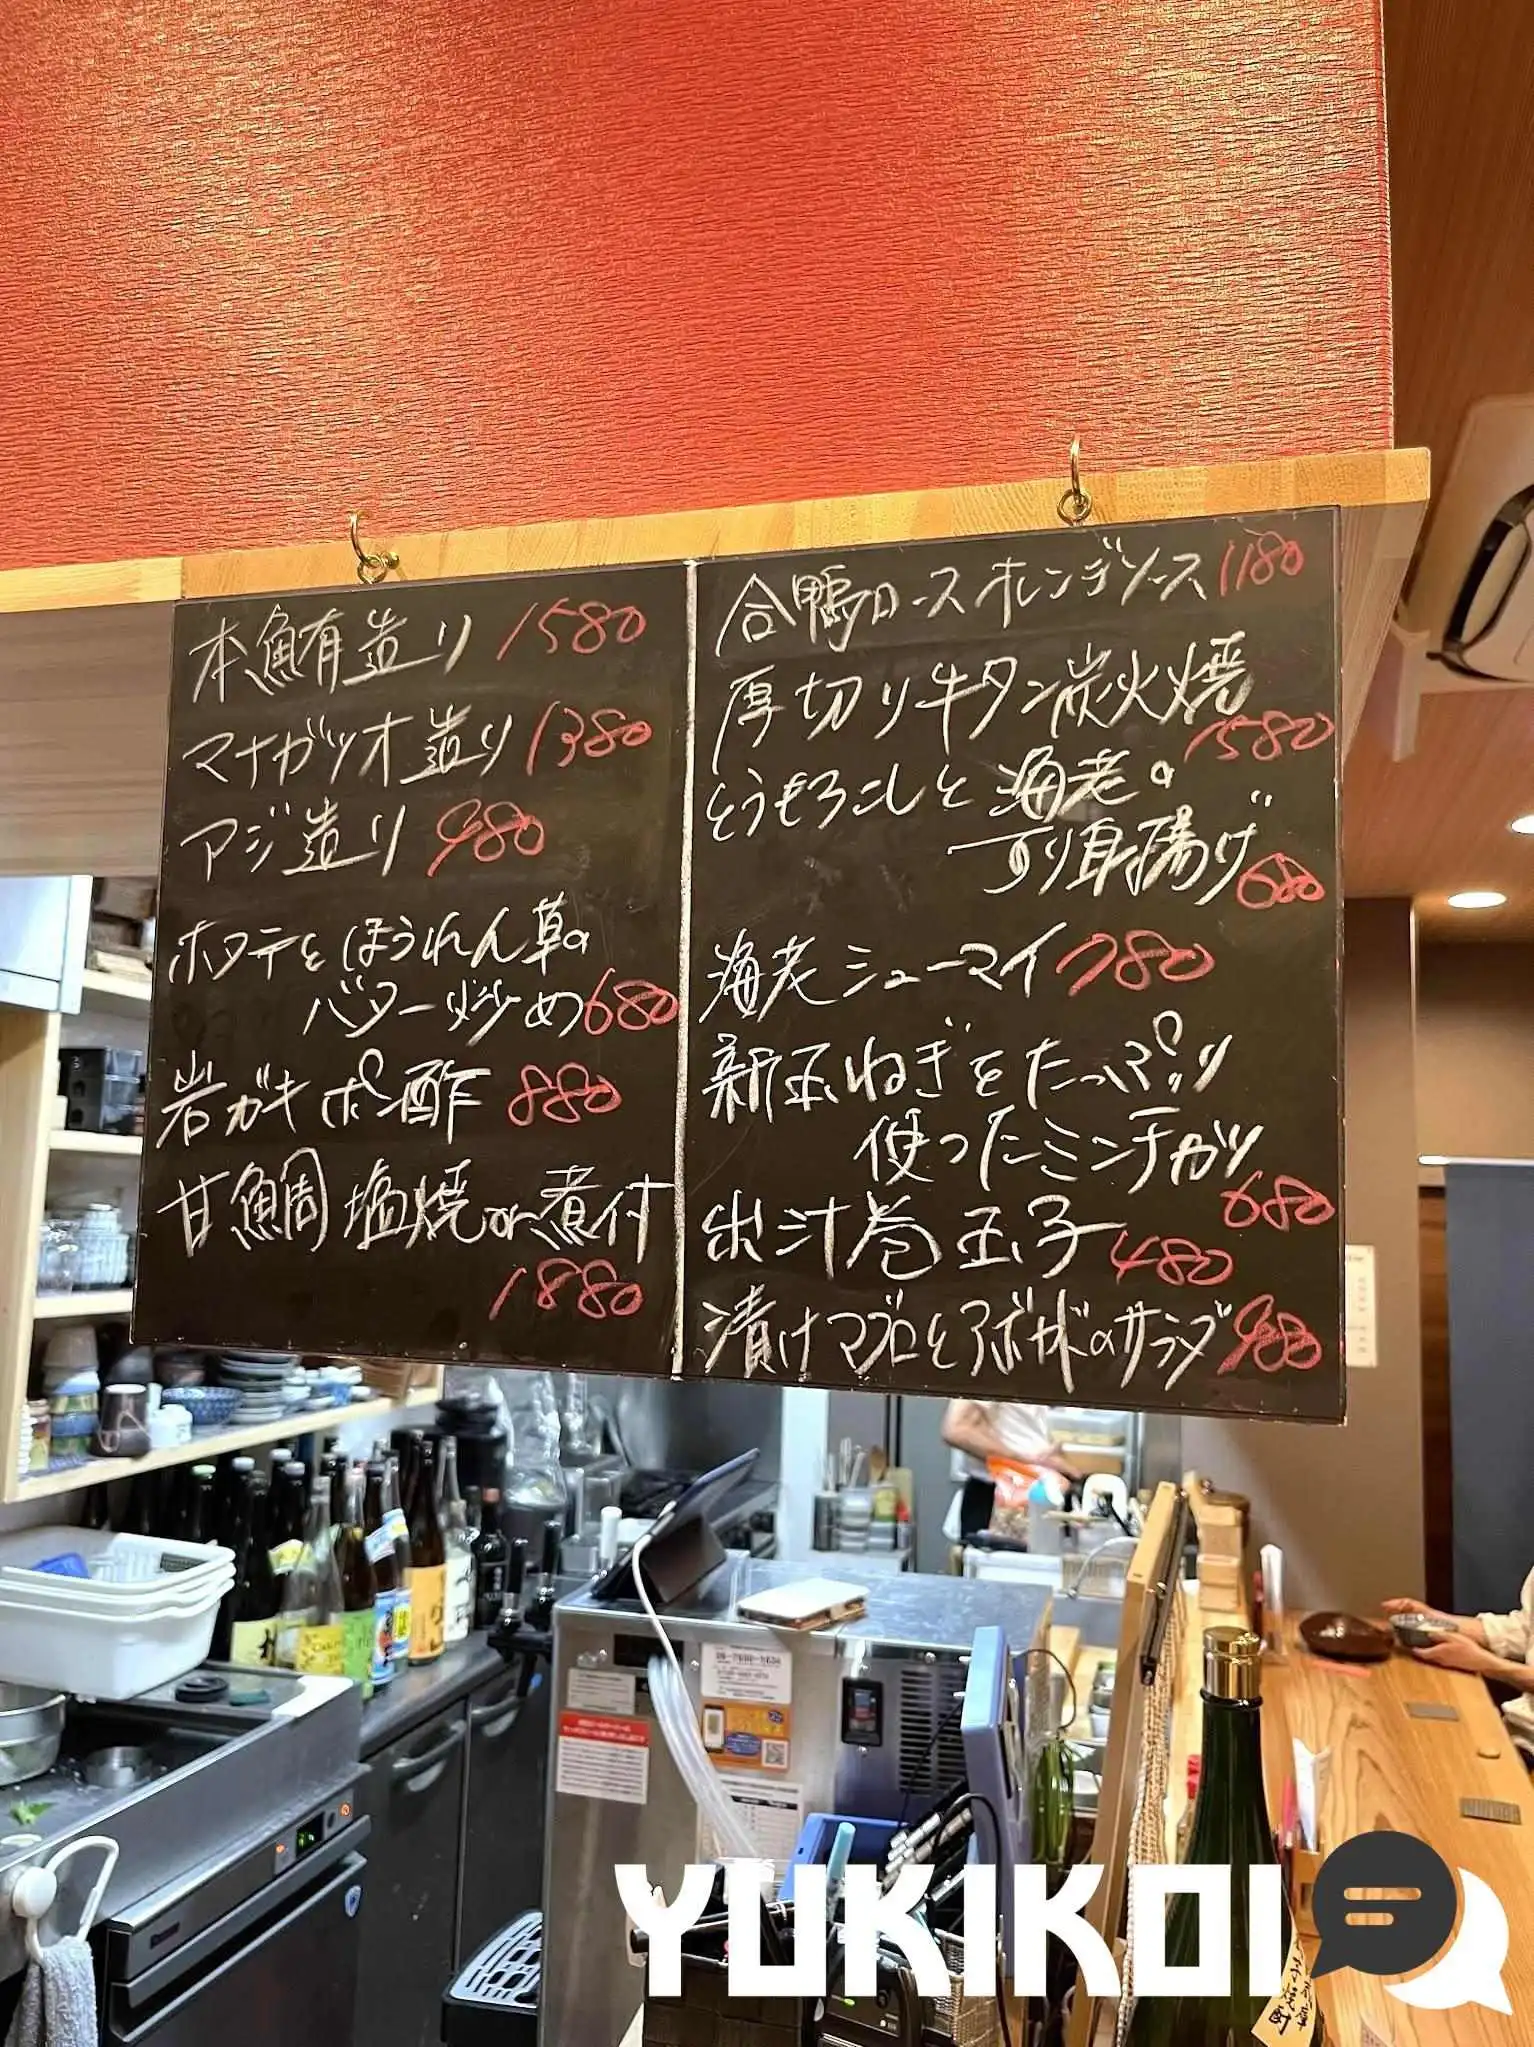 本鮪造り 1580
マナガツオ造り 1380
アジ造り 980
ホタテとほうれん草の
バター炒め 680
岩ガキポン酢 880
甘鯛 塩焼or煮付
1880
合鴨ロースオレンヂソース 1180
厚切り牛タン炭火焼
1580
とうもろこしと海老の
すり身揚げ 680
海老シューマイ 780
新玉ねぎをたっぷり
使ったミンチカツ
680
出汁巻玉子 480
漬けマグロとアボカドのサラダ 980
YUKIKOI